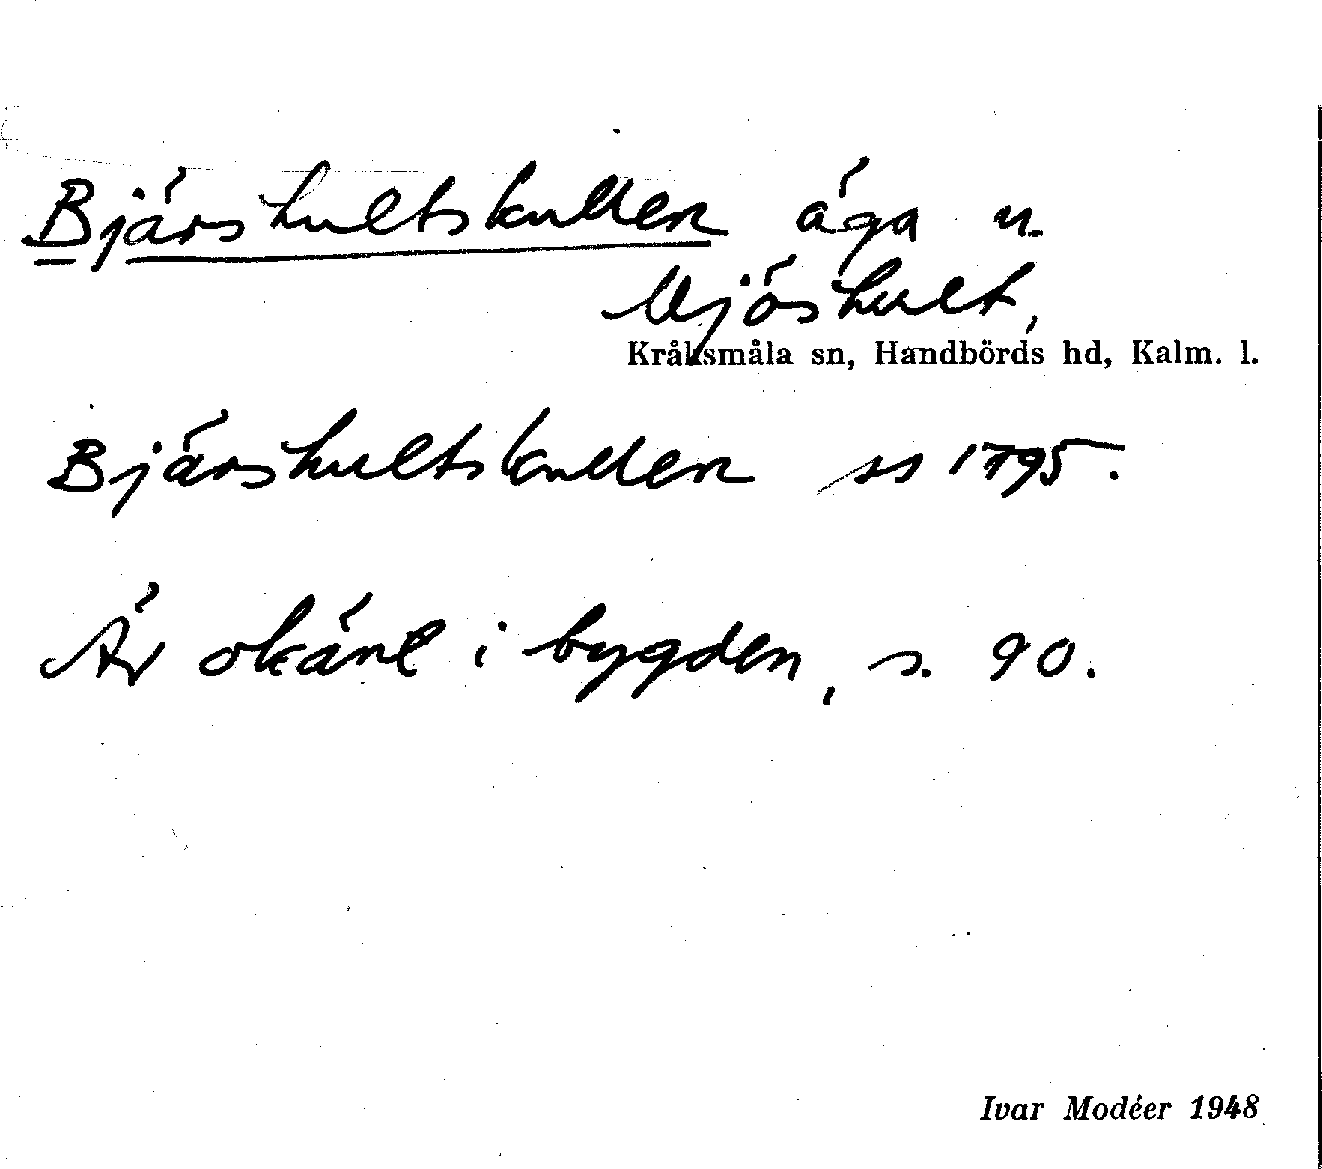 Bjärshultskullen äga u.
Mjöshult,
Kråksmåla sn, Handbörds hd, Kalm. l.
Bjärshultskullen ss 1795.
Är okänt i bygden, s. 90.
Ivar Modéer 1948